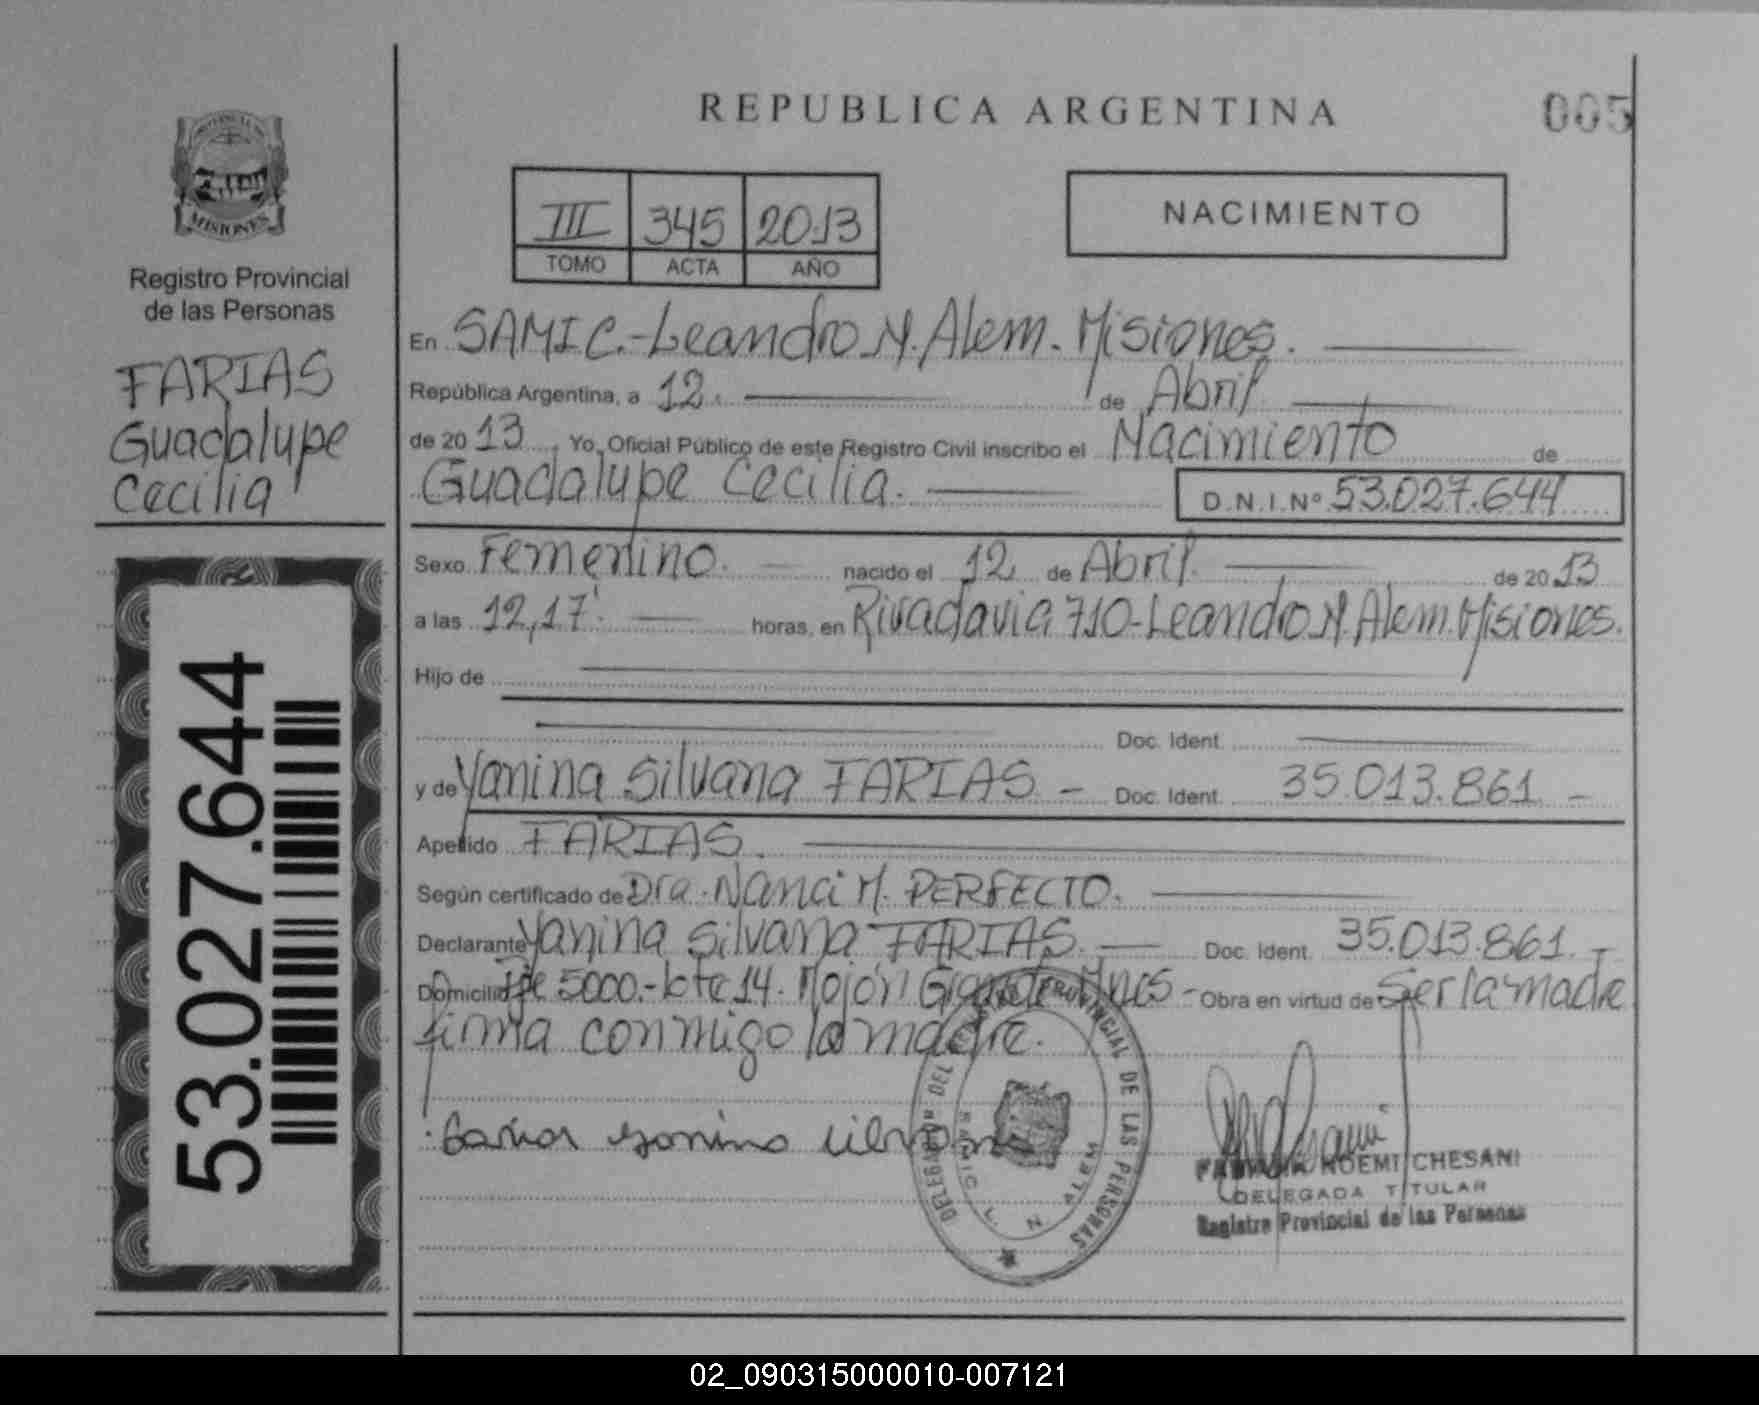 REPUBLICA ARGENTINA
005
MISIONES
Registro Provincial
de las Personas
FARIAS
Guadalupe
Cecilia
53.027.644
III 345 2013
TOMO ACTA AÑO
NACIMIENTO
En SAMIC.-Leandro N. Alem. Misiones.
República Argentina, a 12. de Abril
de 20 13, Yo, Oficial Público de este Registro Civil inscribo el Nacimiento de
Guadalupe Cecilia. D.N.I.Nº 53.027.644
Sexo Femenino. nacido el 12 de Abril. de 20 13
a las 12,17' horas, en Rivadavia 710-Leandro N. Alem. Misiones.
Hijo de
Doc. Ident.
y de Yanina Silvana FARIAS. - Doc. Ident. 35.013.861. -
Apellido FARIAS.
Según certificado de Dra. Nanci M. PERFECTO.
Declarante Yanina Silvana FARIAS. Doc. Ident. 35.013.861. -
Domicilio 5000.-lote 14. Mojón Grande Mnes - Obra en virtud de Ser la madre
firma conmigo la madre.
DELEGADA TITULAR
NOEMI CHESANI
Registro Provincial de las Personas
PROVINCIAL DE LAS PERSONAS
SAMIC L. N. ALEM
02_090315000010-007121